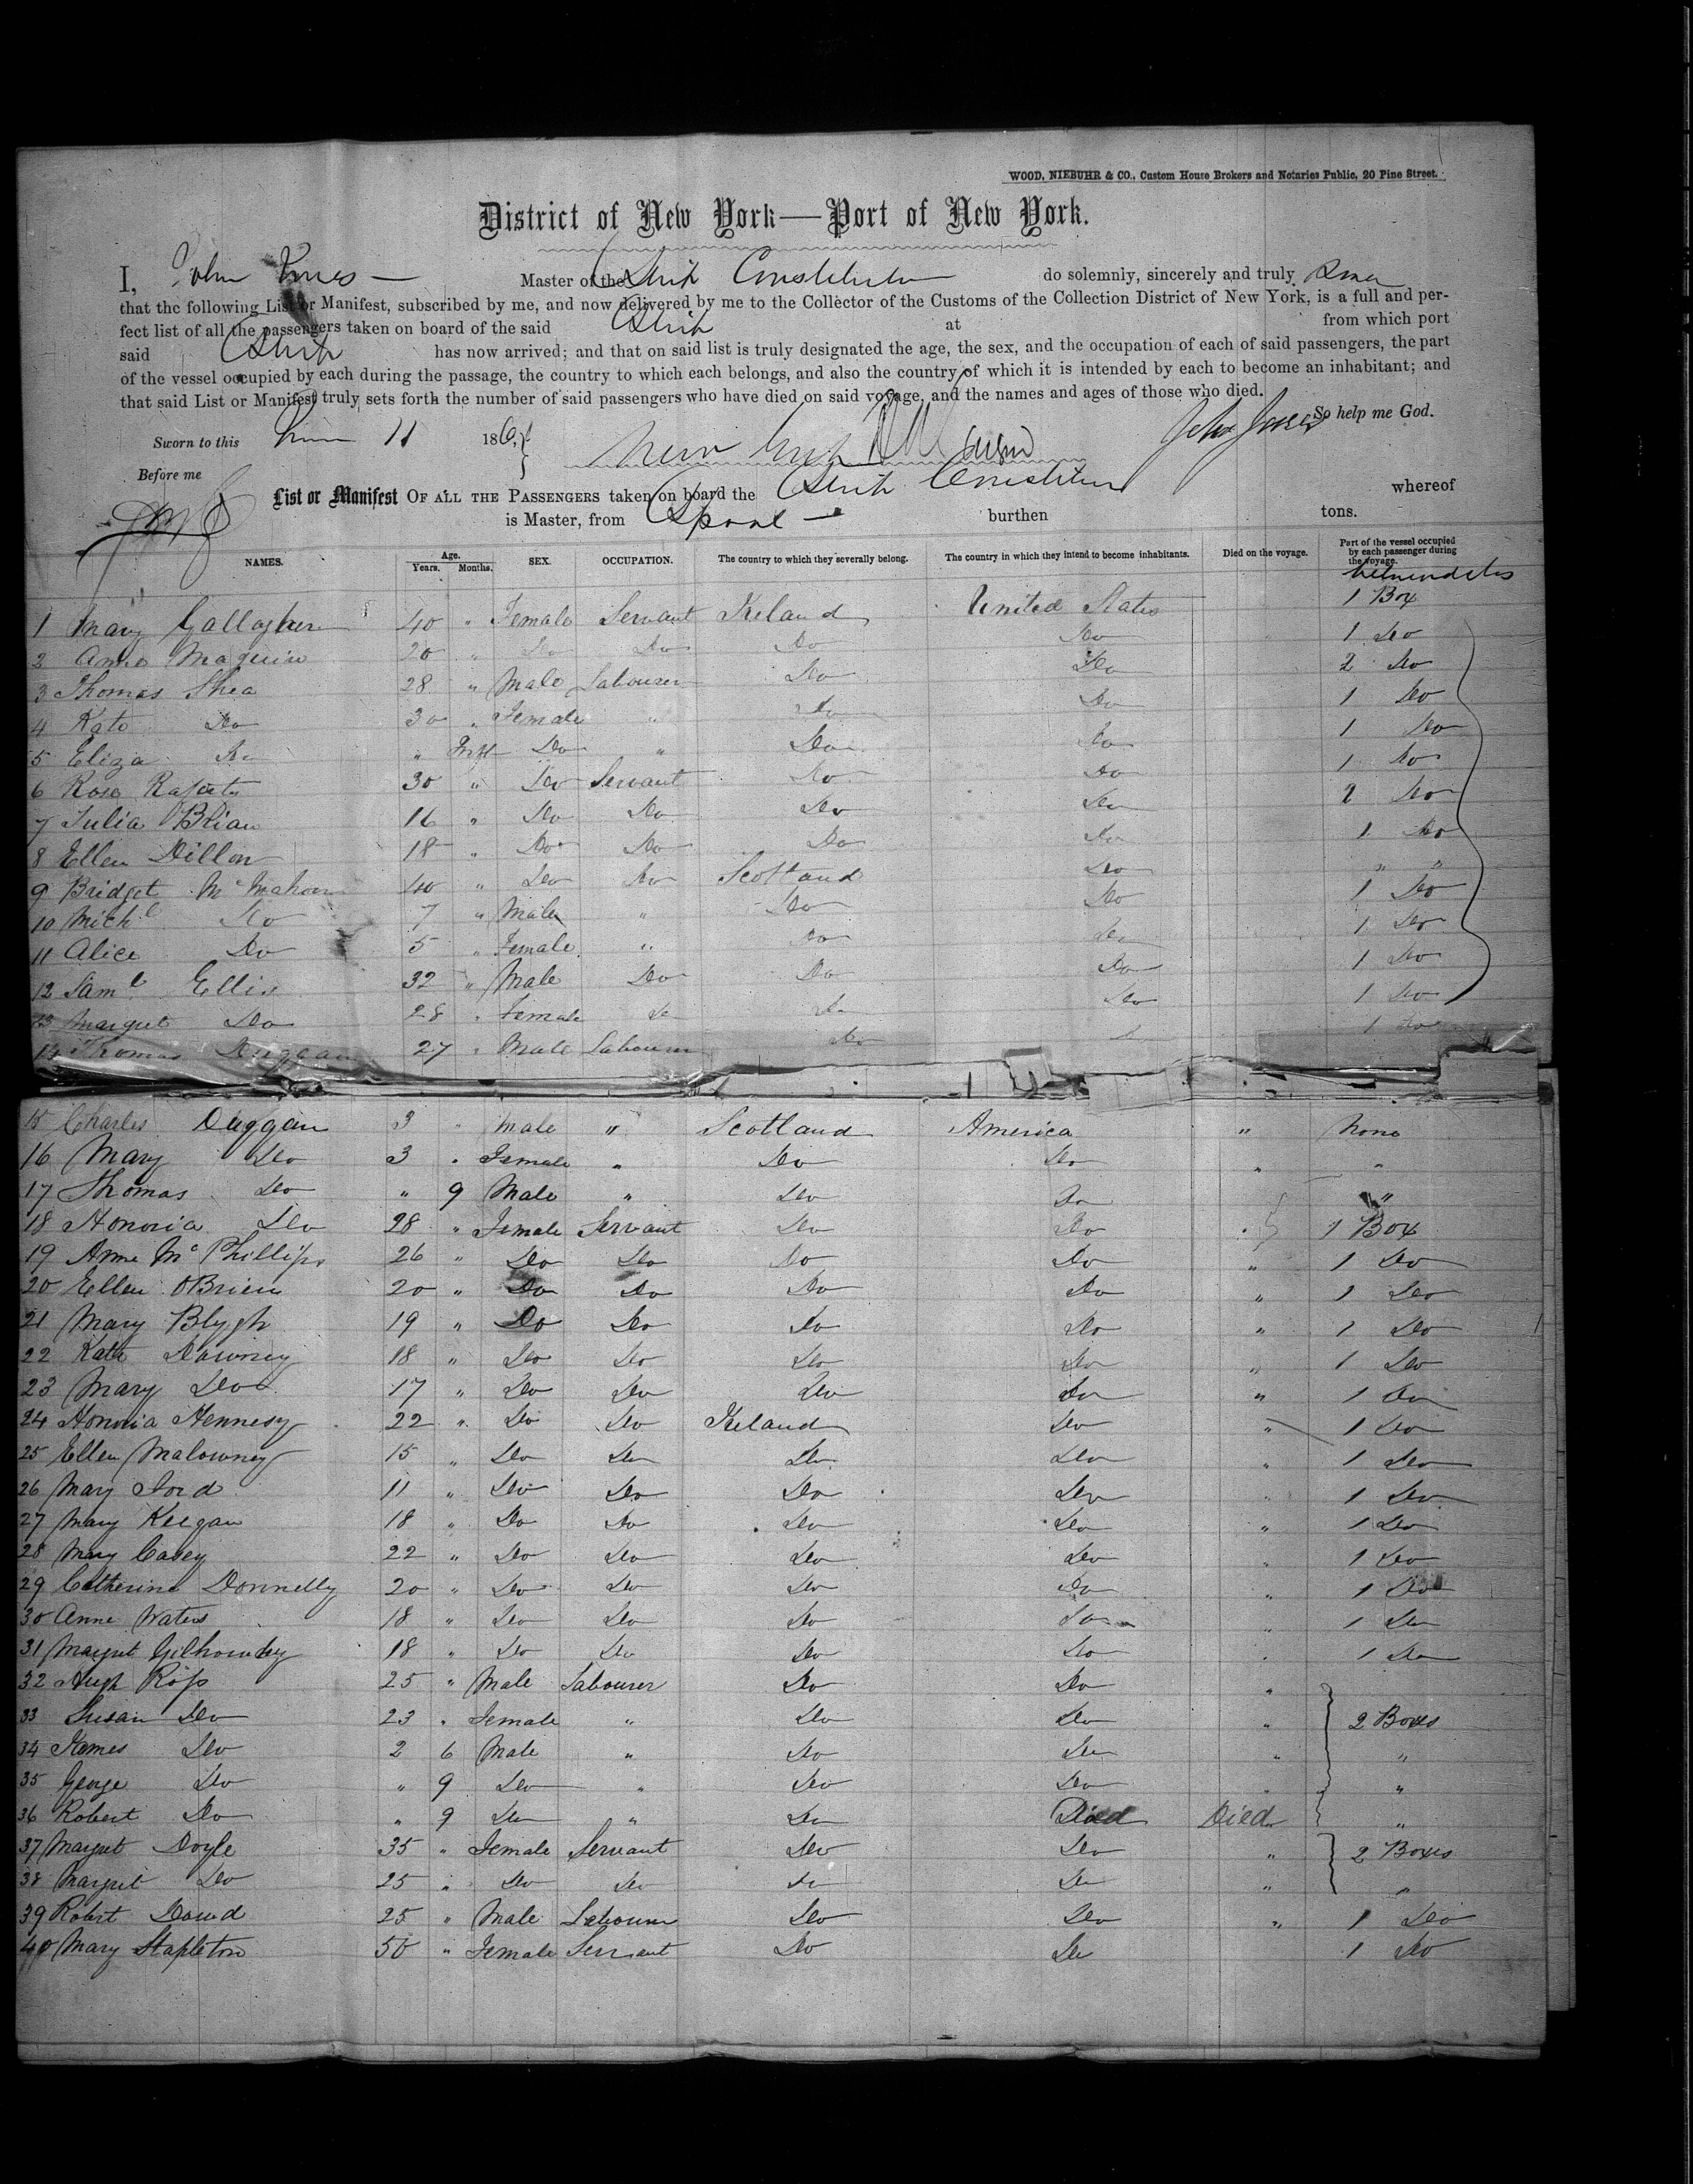 WOOD, NIEBUHR & CO., Custom House Brokers and Notaries Public, 20 Pine Street.
District of New York—Port of New York.
I, John Jones — Master of the Ship Constitution do solemnly, sincerely and truly swear
that the following List or Manifest, subscribed by me, and now delivered by me to the Collector of the Customs of the Collection District of New York, is a full and per-
fect list of all the passengers taken on board of the said Ship at from which port
said Ship has now arrived; and that on said list is truly designated the age, the sex, and the occupation of each of said passengers, the part
of the vessel occupied by each during the passage, the country to which each belongs, and also the country of which it is intended by each to become an inhabitant; and
that said List or Manifest truly sets forth the number of said passengers who have died on said voyage, and the names and ages of those who died.
So help me God.
Sworn to this 11 186 John Jones
Before me
List or Manifest OF ALL THE PASSENGERS taken on board the Ship Constitution whereof
is Master, from Lpool — burthen tons.
NAMES. Age. Years. Months. SEX. OCCUPATION. The country to which they severally belong. The country in which they intend to become inhabitants. Died on the voyage. Part of the vessel occupied by each passenger during the voyage.
1 Mary Gallagher 40 " Female Servant Ireland United States 1 Box
2 Anne Maguire 20 " Do Do Do Do 1 Do
3 Thomas Shea 28 " Male Labourer Do Do 2 Do
4 Kate Do 30 " Female " Do Do 1 Do
5 Eliza Do " Inft Do " Do Do 1 Do
6 Rose 30 " Do Servant Do Do 1 Do
7 Julia Brian 16 " Do Do Do Do 2 Do
8 Ellen Dillon 18 " Do Do Do Do 1 Do
9 Bridget McMahon 40 " Do Do Scotland Do " "
10 Michl Do 7 " Male " Do Do 1 Do
11 Alice Do 5 " Female " Do Do 1 Do
12 Saml Ellis 32 " Male Do Do Do 1 Do
13 Margret Do 28 " Female Do Do Do 1 Do
14 Thomas Duggan 27 " Male Labourer Do Do 1 Do
15 Charles Duggan 3 " Male " Scotland America " None
16 Mary Do 3 " Female " Do Do " "
17 Thomas Do " 9 Male " Do Do "
18 Honoria Do 28 " Female Servant Do Do 1 Box
19 Anne McPhillips 26 " Do Do Do Do " 1 Do
20 Ellen OBrien 20 " Do Do Do Do " 1 Do
21 Mary Blygh 19 " Do Do Do Do " 1 Do
22 Kate Downey 18 " Do Do Do Do " 1 Do
23 Mary Do 17 " Do Do Do Do " 1 Do
24 Honoria Hennesy 22 " Do Do Ireland Do " 1 Do
25 Ellen Malowney 15 " Do Do Do Do " 1 Do
26 Mary Ford 11 " Do Do Do Do " 1 Do
27 Mary Keegan 18 " Do Do Do Do " 1 Do
28 Mary Casey 22 " Do Do Do Do " 1 Do
29 Catherine Donnelly 20 " Do Do Do Do " 1 Do
30 Anne Waters 18 " Do Do Do Do " 1 Do
31 Margret 18 " Do Do Do Do " 1 Do
32 Hugh Ross 25 " Male Labourer Do Do "
33 Susan Do 23 " Female " Do Do " 2 Boxes
34 James Do 2 6 Male " Do Do " "
35 George Do " 9 Do " Do Do " "
36 Robert Do " 9 Do " Do Died Died "
37 Margret Doyle 35 " Female Servant Do Do " 2 Boxes
38 Margret Do 25 " Do Do Do Do " "
39 Robert Dowd 25 " Male Labourer Do Do " 1 Do
40 Mary Stapleton 50 " Female Servant Do Do 1 Do